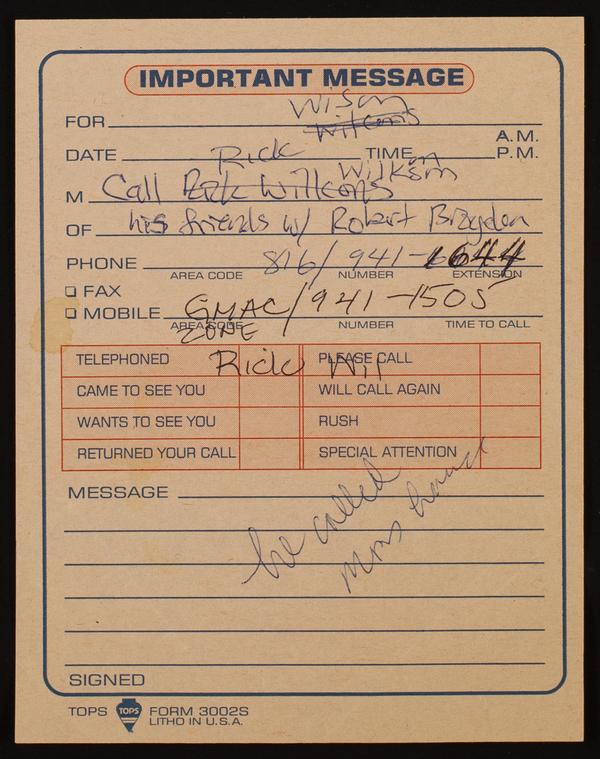 IMPORTANT MESSAGE
Wilson
FOR Wilkens
A.M.
DATE Rick TIME P.M.
Wilksm
M Call Rick Wilkens
OF his friends w/ Robert Brogden
PHONE 816/941-6644
AREA CODE NUMBER EXTENSION
FAX
MOBILE GMAC/941-1505
AREA CODE NUMBER TIME TO CALL
ZONE
TELEPHONED Rick Wil PLEASE CALL
CAME TO SEE YOU WILL CALL AGAIN
WANTS TO SEE YOU RUSH
RETURNED YOUR CALL SPECIAL ATTENTION
MESSAGE
he called
SIGNED
TOPS TOPS FORM 3002S
LITHO IN U.S.A.